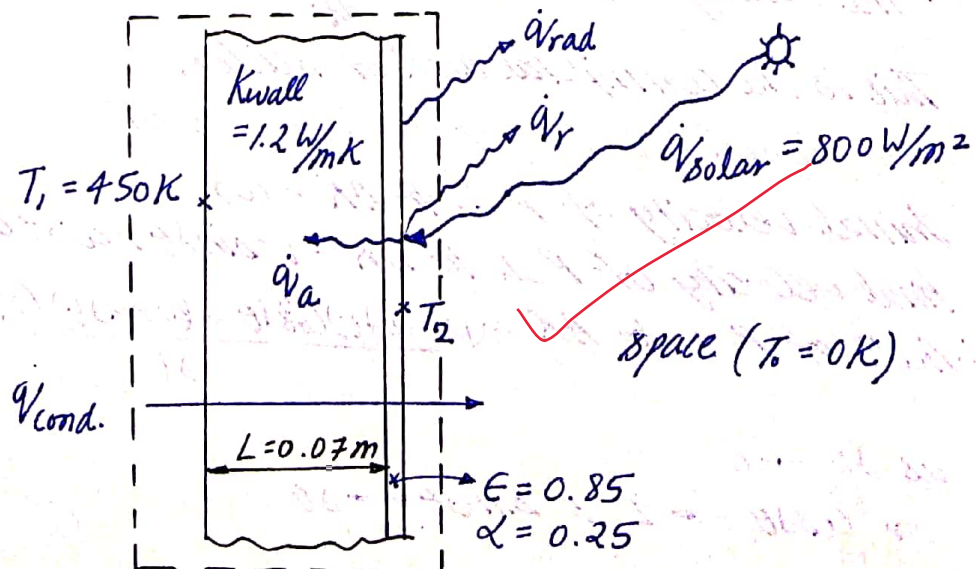 q̇rad
Kwall
=1.2 W/mK
q̇r
q̇solar = 800 W/m²
T₁ = 450K
q̇a
T₂
space (T₀ = 0K)
q̇cond.
L=0.07m
ϵ = 0.85
α = 0.25